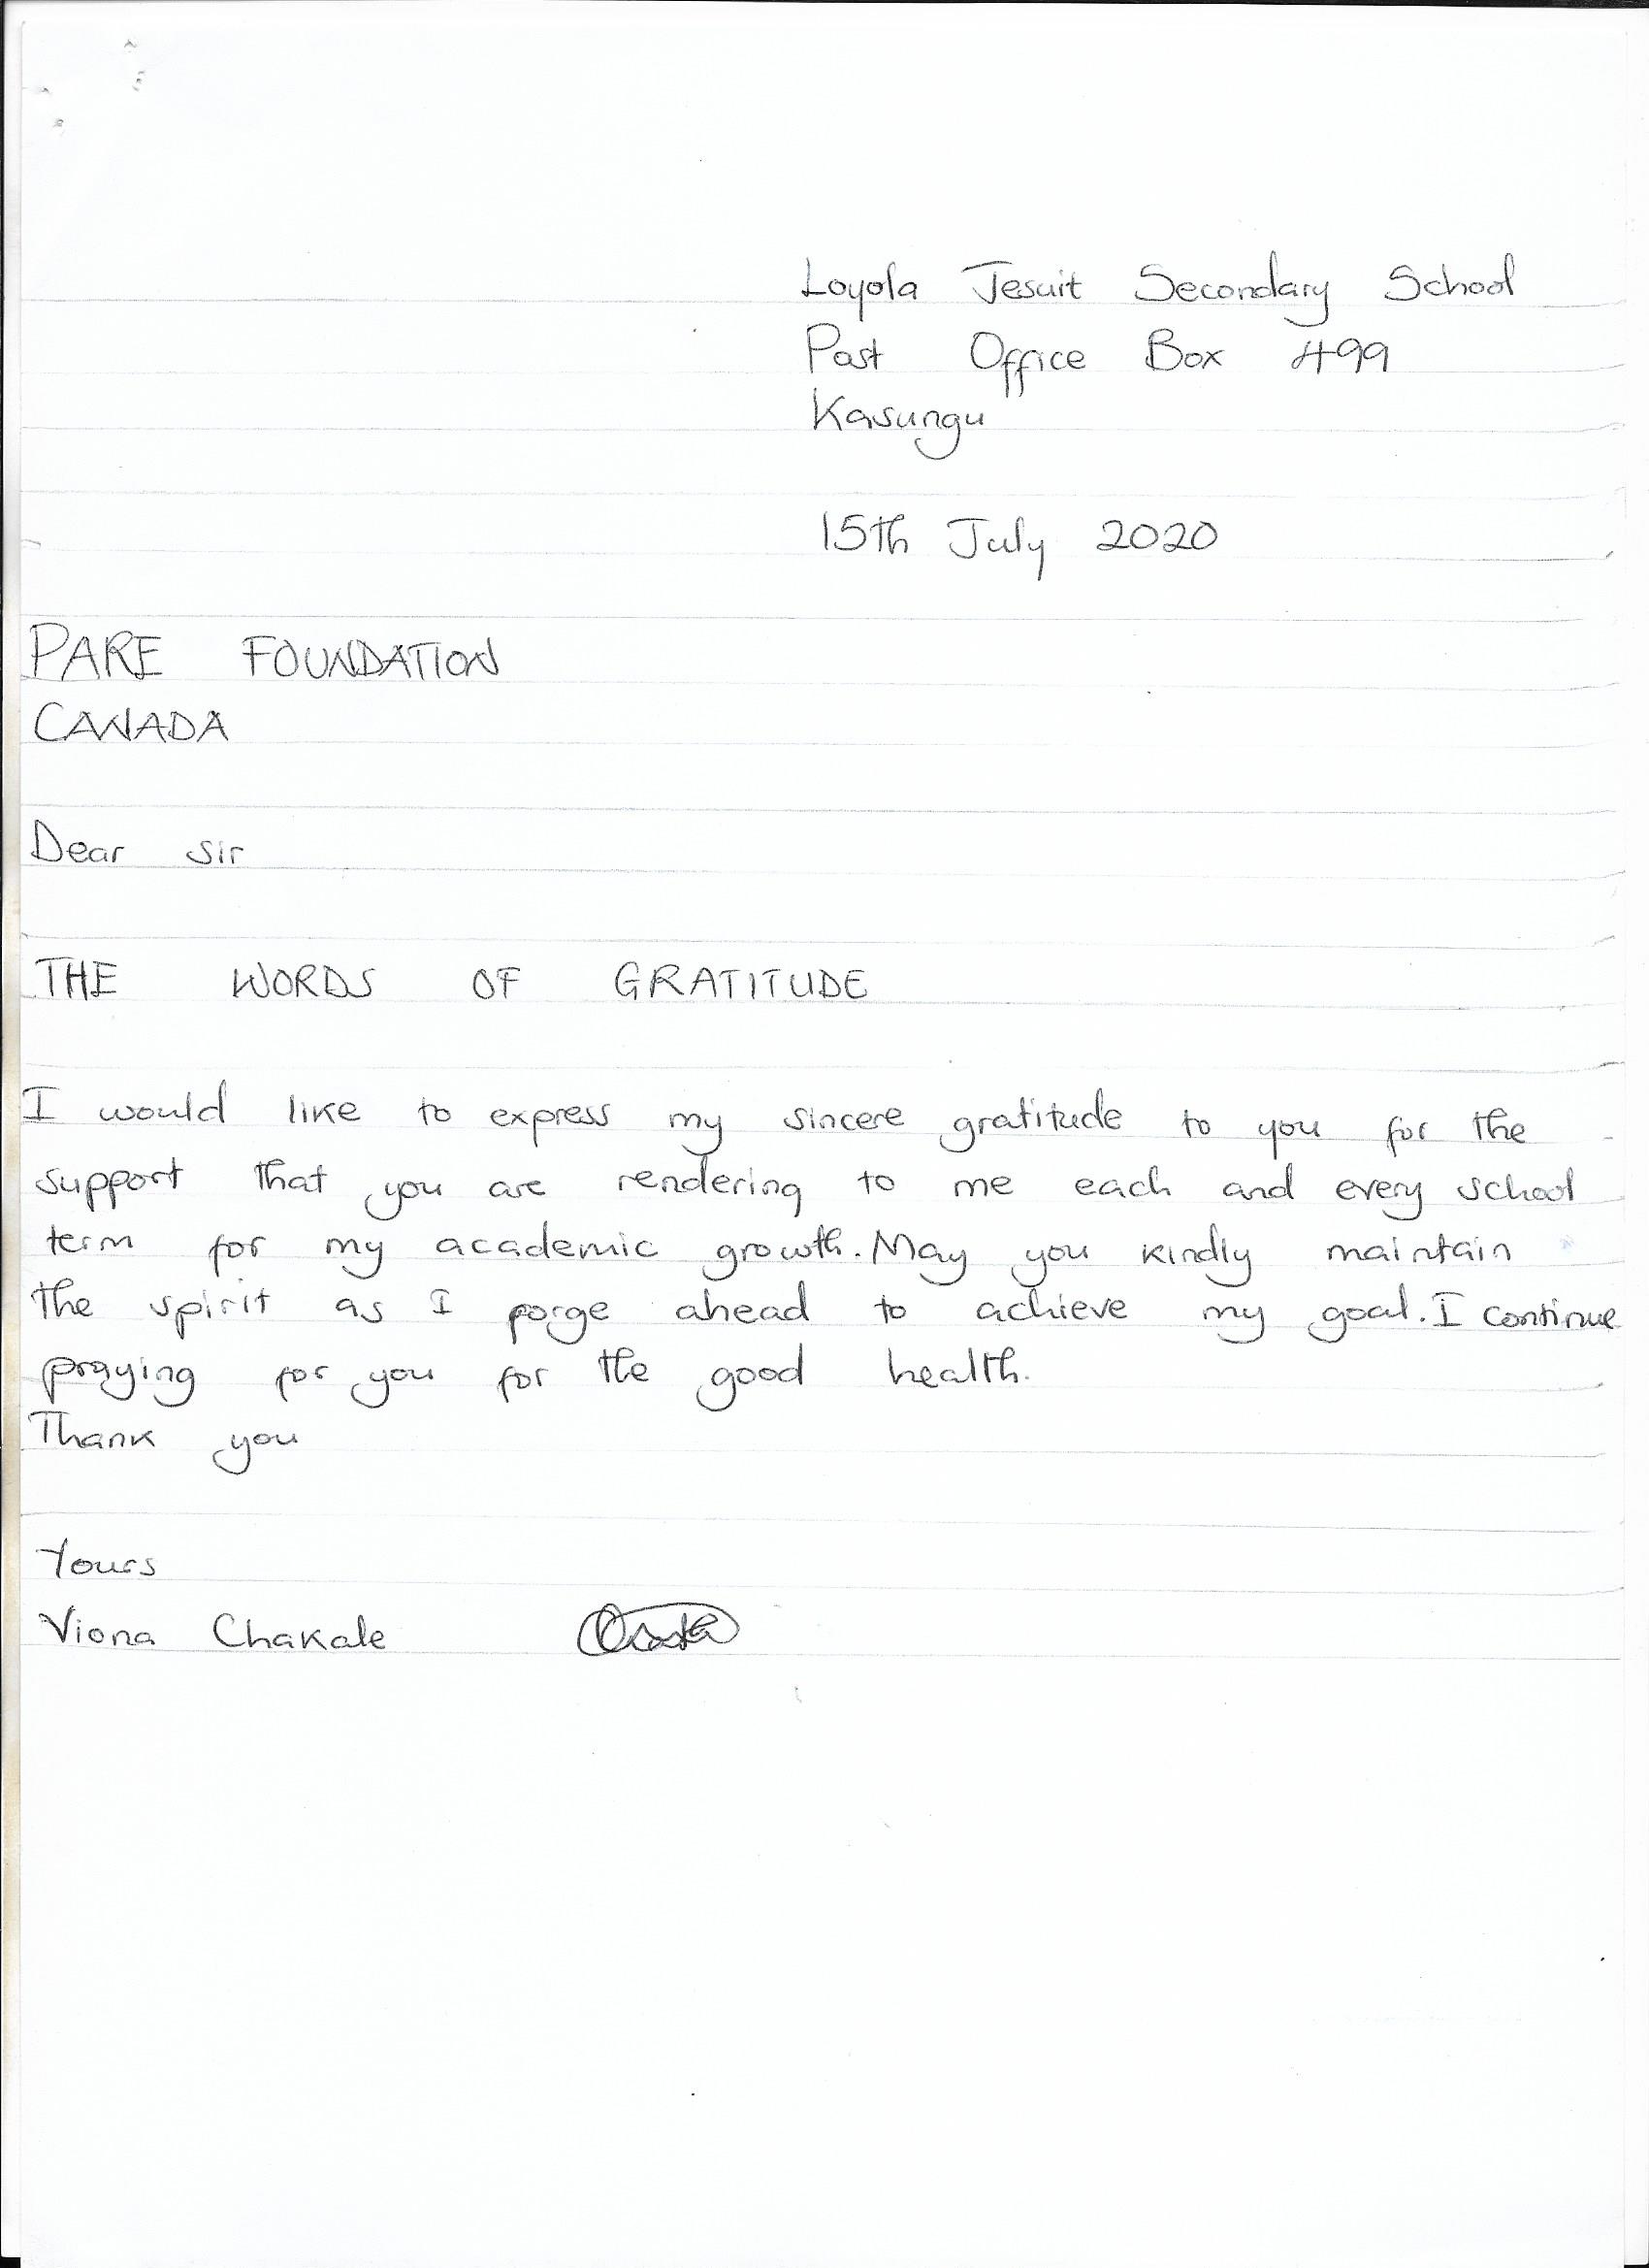 Loyola Jesuit Secondary School
Post Office Box 499
Kasungu
15th July 2020
PARE FOUNDATION
CANADA
Dear Sir
THE WORDS OF GRATITUDE
I would like to express my sincere gratitude to you for the
support that you are rendering to me each and every school
term for my academic growth. May you kindly maintain
the spirit as I forge ahead to achieve my goal. I continue
praying for you for the good health.
Thank you
Yours
Viona Chakale